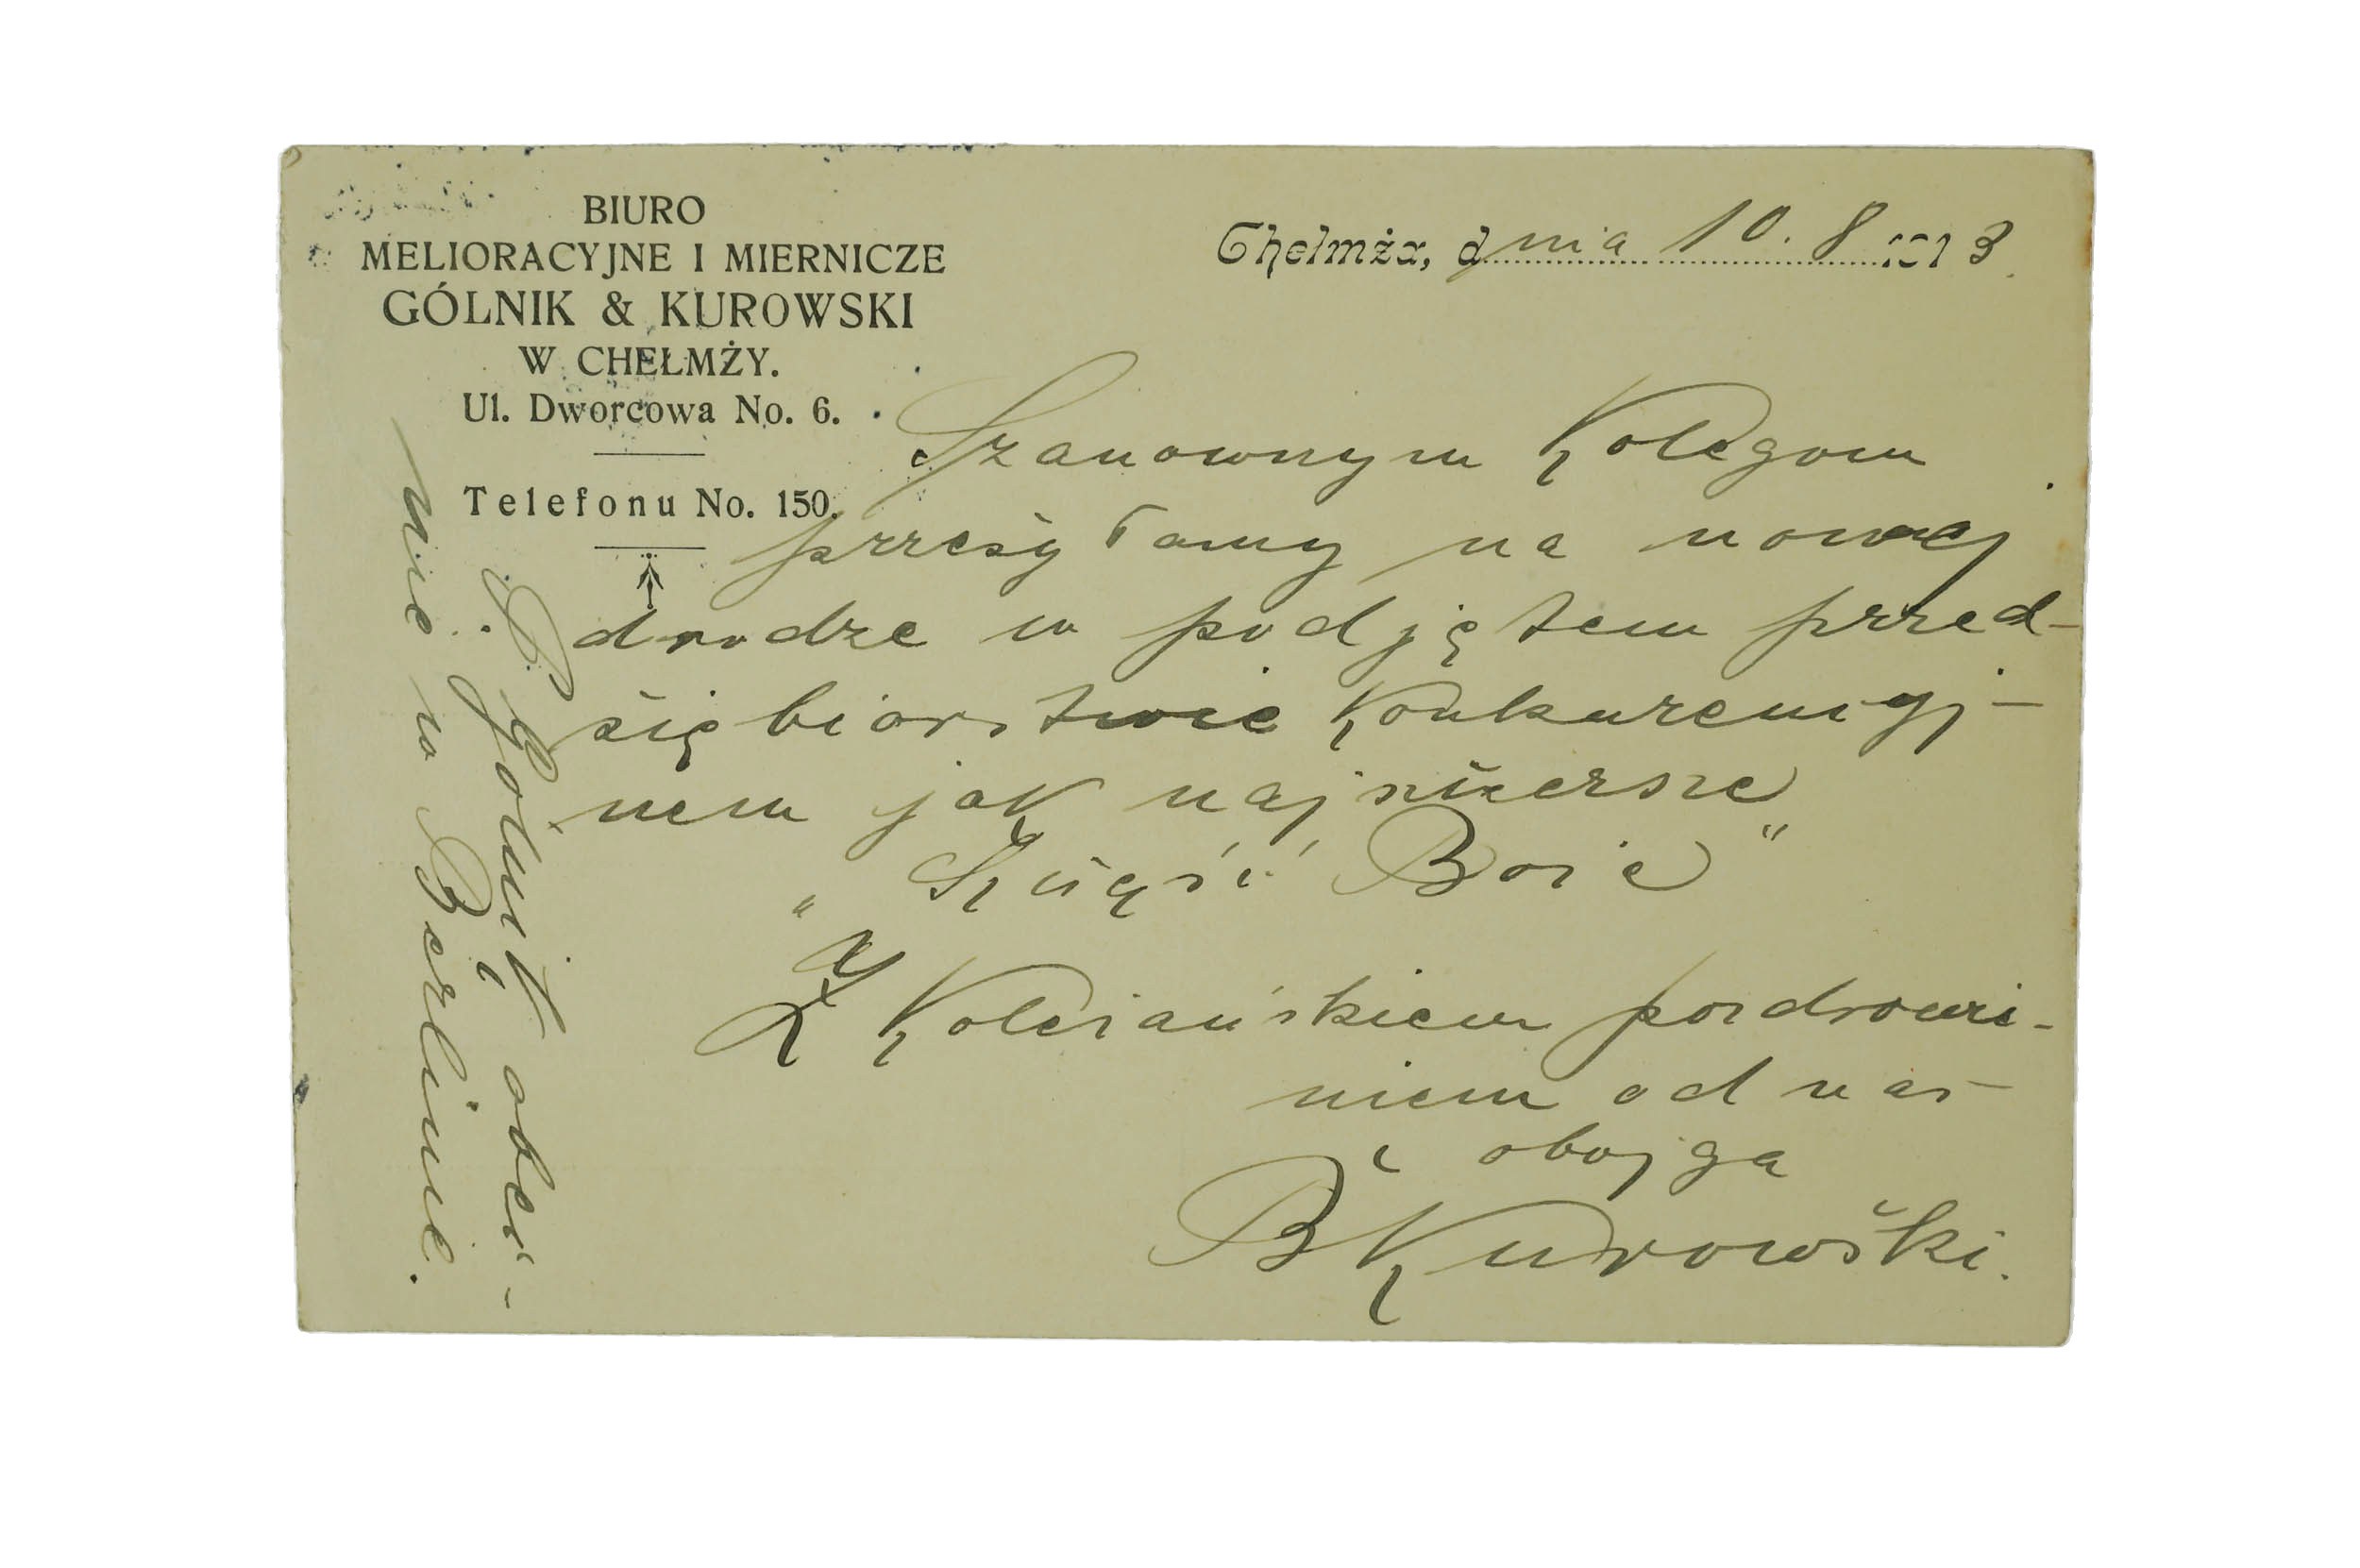 BIURO
MELIORACYJNE I MIERNICZE
GÓLNIK & KUROWSKI
W CHEŁMŻY.
Ul. Dworcowa No. 6.
Telefonu No. 150.
Chełmża, dnia 10. 8 1913.
Szanownym Kolegom
przesyłamy na nowej
drodze w podjętem przed-
sięбiorstwie konkurencyj-
nem jak najszczersze
„Szczęść Boże"
Z Koleżańskiem pozdrowie-
niem od nas
obojga
B Kurowski.
P. Gólnik obec-
nie w Berlinie.